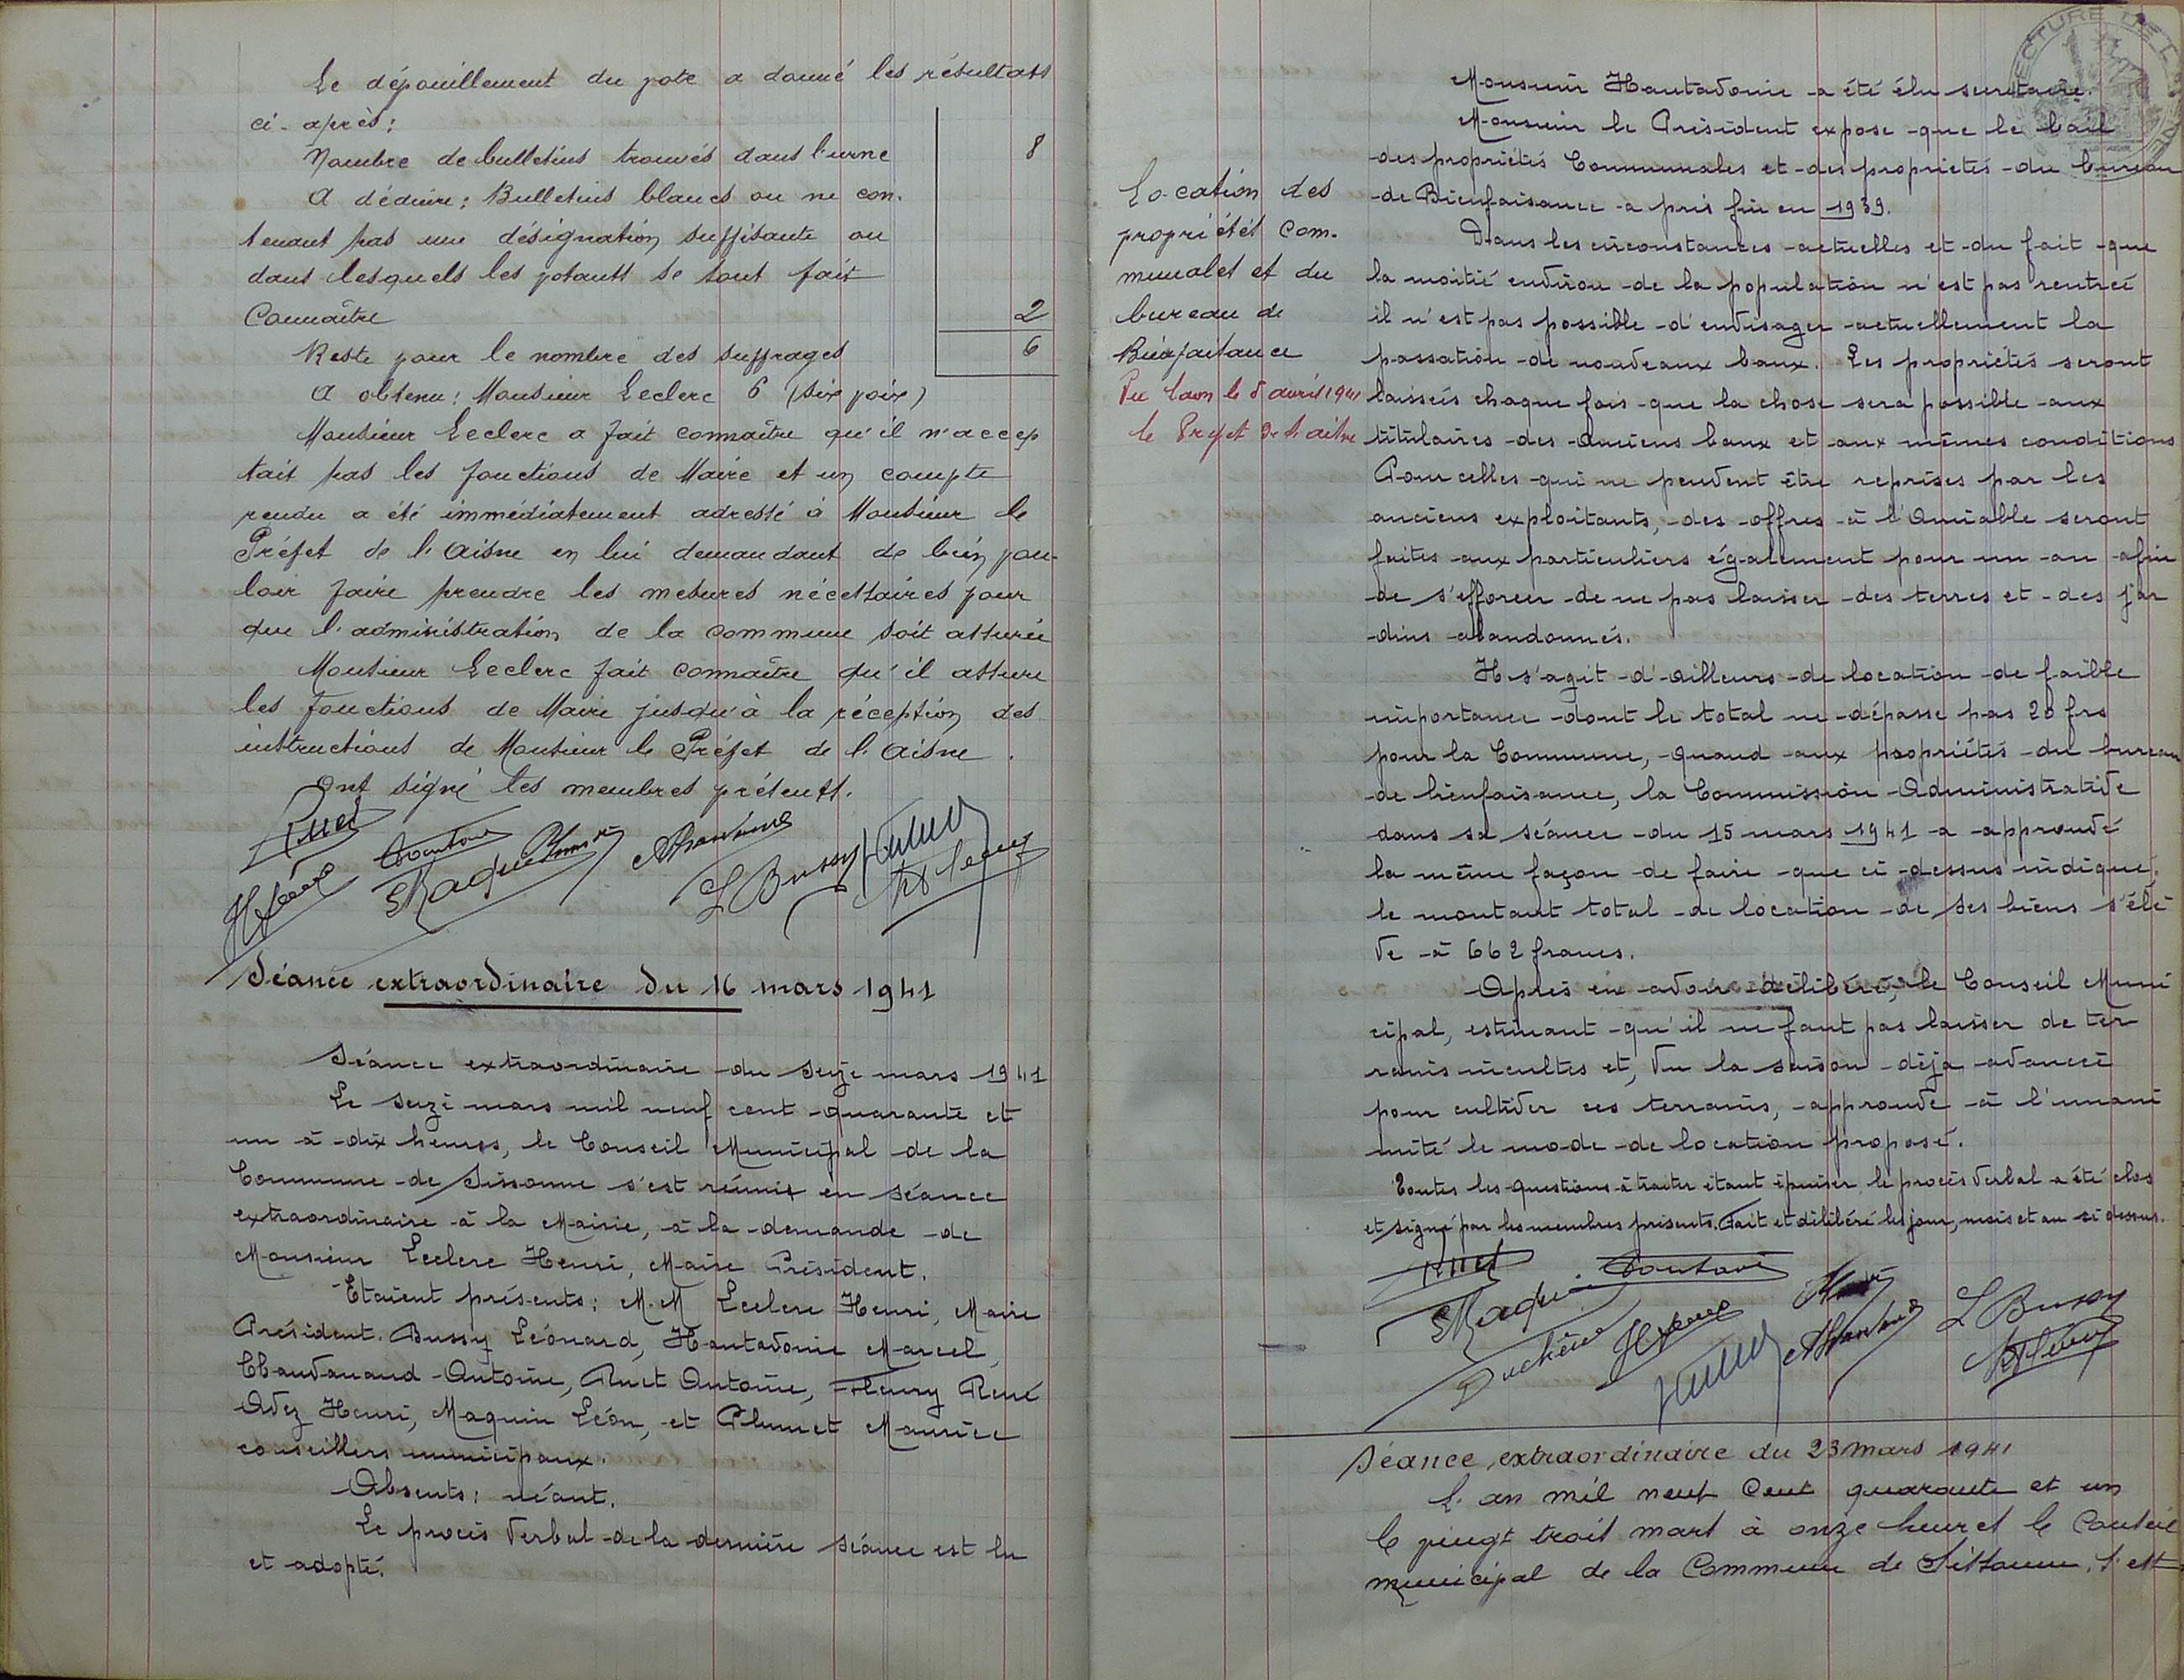 Le dépouillement du vote a donné les résultats
ci-après:
Nombre de bulletins trouvés dans l'urne 8
A déduire: Bulletins blancs ou ne con-
tenant pas une désignation suffisante ou
dans lesquels les votants se sont fait
Connaître 2
Reste pour le nombre des suffrages 6
A obtenu: Monsieur Leclerc 6 (Six voix)
Monsieur Leclerc a fait connaître qu'il n'accep
tait pas les fonctions de Maire et un compte
rendu a été immédiatement adressé à Monsieur le
Préfet de l'Aisne en lui demandant de bien vou-
loir faire prendre les mesures nécessaires pour
que l'administration de la commune soit assurée
Monsieur Leclerc fait connaître qu'il assure
les fonctions de Maire jusqu'à la réception des
instructions de Monsieur le Préfet de l'Aisne.
Ont signé les membres présents.
L Bussy
Séance extraordinaire du 16 mars 1941
Séance extraordinaire du Seize mars 1941
Le Seize mars mil neuf cent quarante et
un à dix heures, le Conseil Municipal de la
Commune de Sissonne s'est réunit en Séance
extraordinaire à la Mairie, à la demande de
Monsieur Leclerc Henri, Maire Président.
Etaient présents: M.M Leclerc Henri, Maire
Président. Bussy Léonard, Hautavoine Marcel,
Chavanaud Antoine, Ruet Antoine, Fleury René
Avez Henri, Maquin Léon, et Plumet Maurice
conseillers municipaux.
Absents: néant.
Le procès Verbal de la dernière Séance est lu
et adopté.
Monsieur Hautavoine a été élu secrétaire.
Monsieur le Président expose que le bail
des propriétés Communales et des propriétés du bureau
de Bienfaisance a pris fin en 1939.
Location des
propriétés Com-
munales et du
bureau de
Bienfaisance
Vu Laon le 8 avril 1941
le Préfet de l'Aisne
Dans les circonstances actuelles et du fait que
la moitié environ de la population n'est pas rentrée
il n'est pas possible d'envisager actuellement la
passation de nouveaux baux. Les propriétés seront
laissées chaque fois que la chose sera possible aux
titulaires des anciens baux et aux mêmes conditions
Pour celles qui ne peuvent être reprises par les
anciens exploitants, des offres à l'Amiable seront
faites aux particuliers également pour un an afin
de s'efforcer de ne pas laisser des terres et des jar
dins abandonnés.
Il s'agit d'ailleurs de location de faible
importance dont le total ne dépasse pas 20 frs
pour la Commune, quand aux propriétés du bureau
de bienfaisance, la Commission Administrative
dans sa séance du 15 mars 1941 a approuvé
la même façon de faire que ci-dessus indiqué.
le montant total de location de ses biens s'élè
ve à 662 francs.
Après en avoir délibéré, le Conseil Muni
cipal, estimant qu'il ne faut pas laisser de ter
rains incultes et, Vu la saison déja avancée
pour cultiver ces terrains, approuve à l'unani
mité le mode de location proposé.
Toutes les questions à traiter étant épuiser le procès Verbal a été clos
et signé par les membres présents. Fait et délibéré les jour, mois et an ci dessus.
L Bussy
Séance extraordinaire du 23 mars 1941
L'an mil neuf Cent quarante et un
le vingt trois mars à onze heures le Conseil
municipal de la Commune de Sissonne, s'est